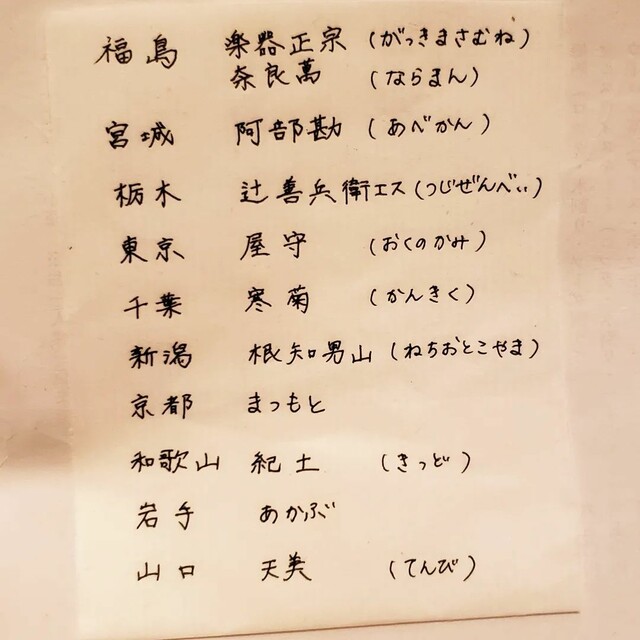 福島 楽器正宗 (がっきまさむね)
奈良萬 (ならまん)
宮城 阿部勘 (あべかん)
栃木 辻善兵衛エス (つじぜんべぃ)
東京 屋守 (おくのかみ)
千葉 寒菊 (かんきく)
新潟 根知男山 (ねちおとこやま)
京都 まつもと
和歌山 紀土 (きっど)
岩手 あかぶ
山口 天美 (てんび)